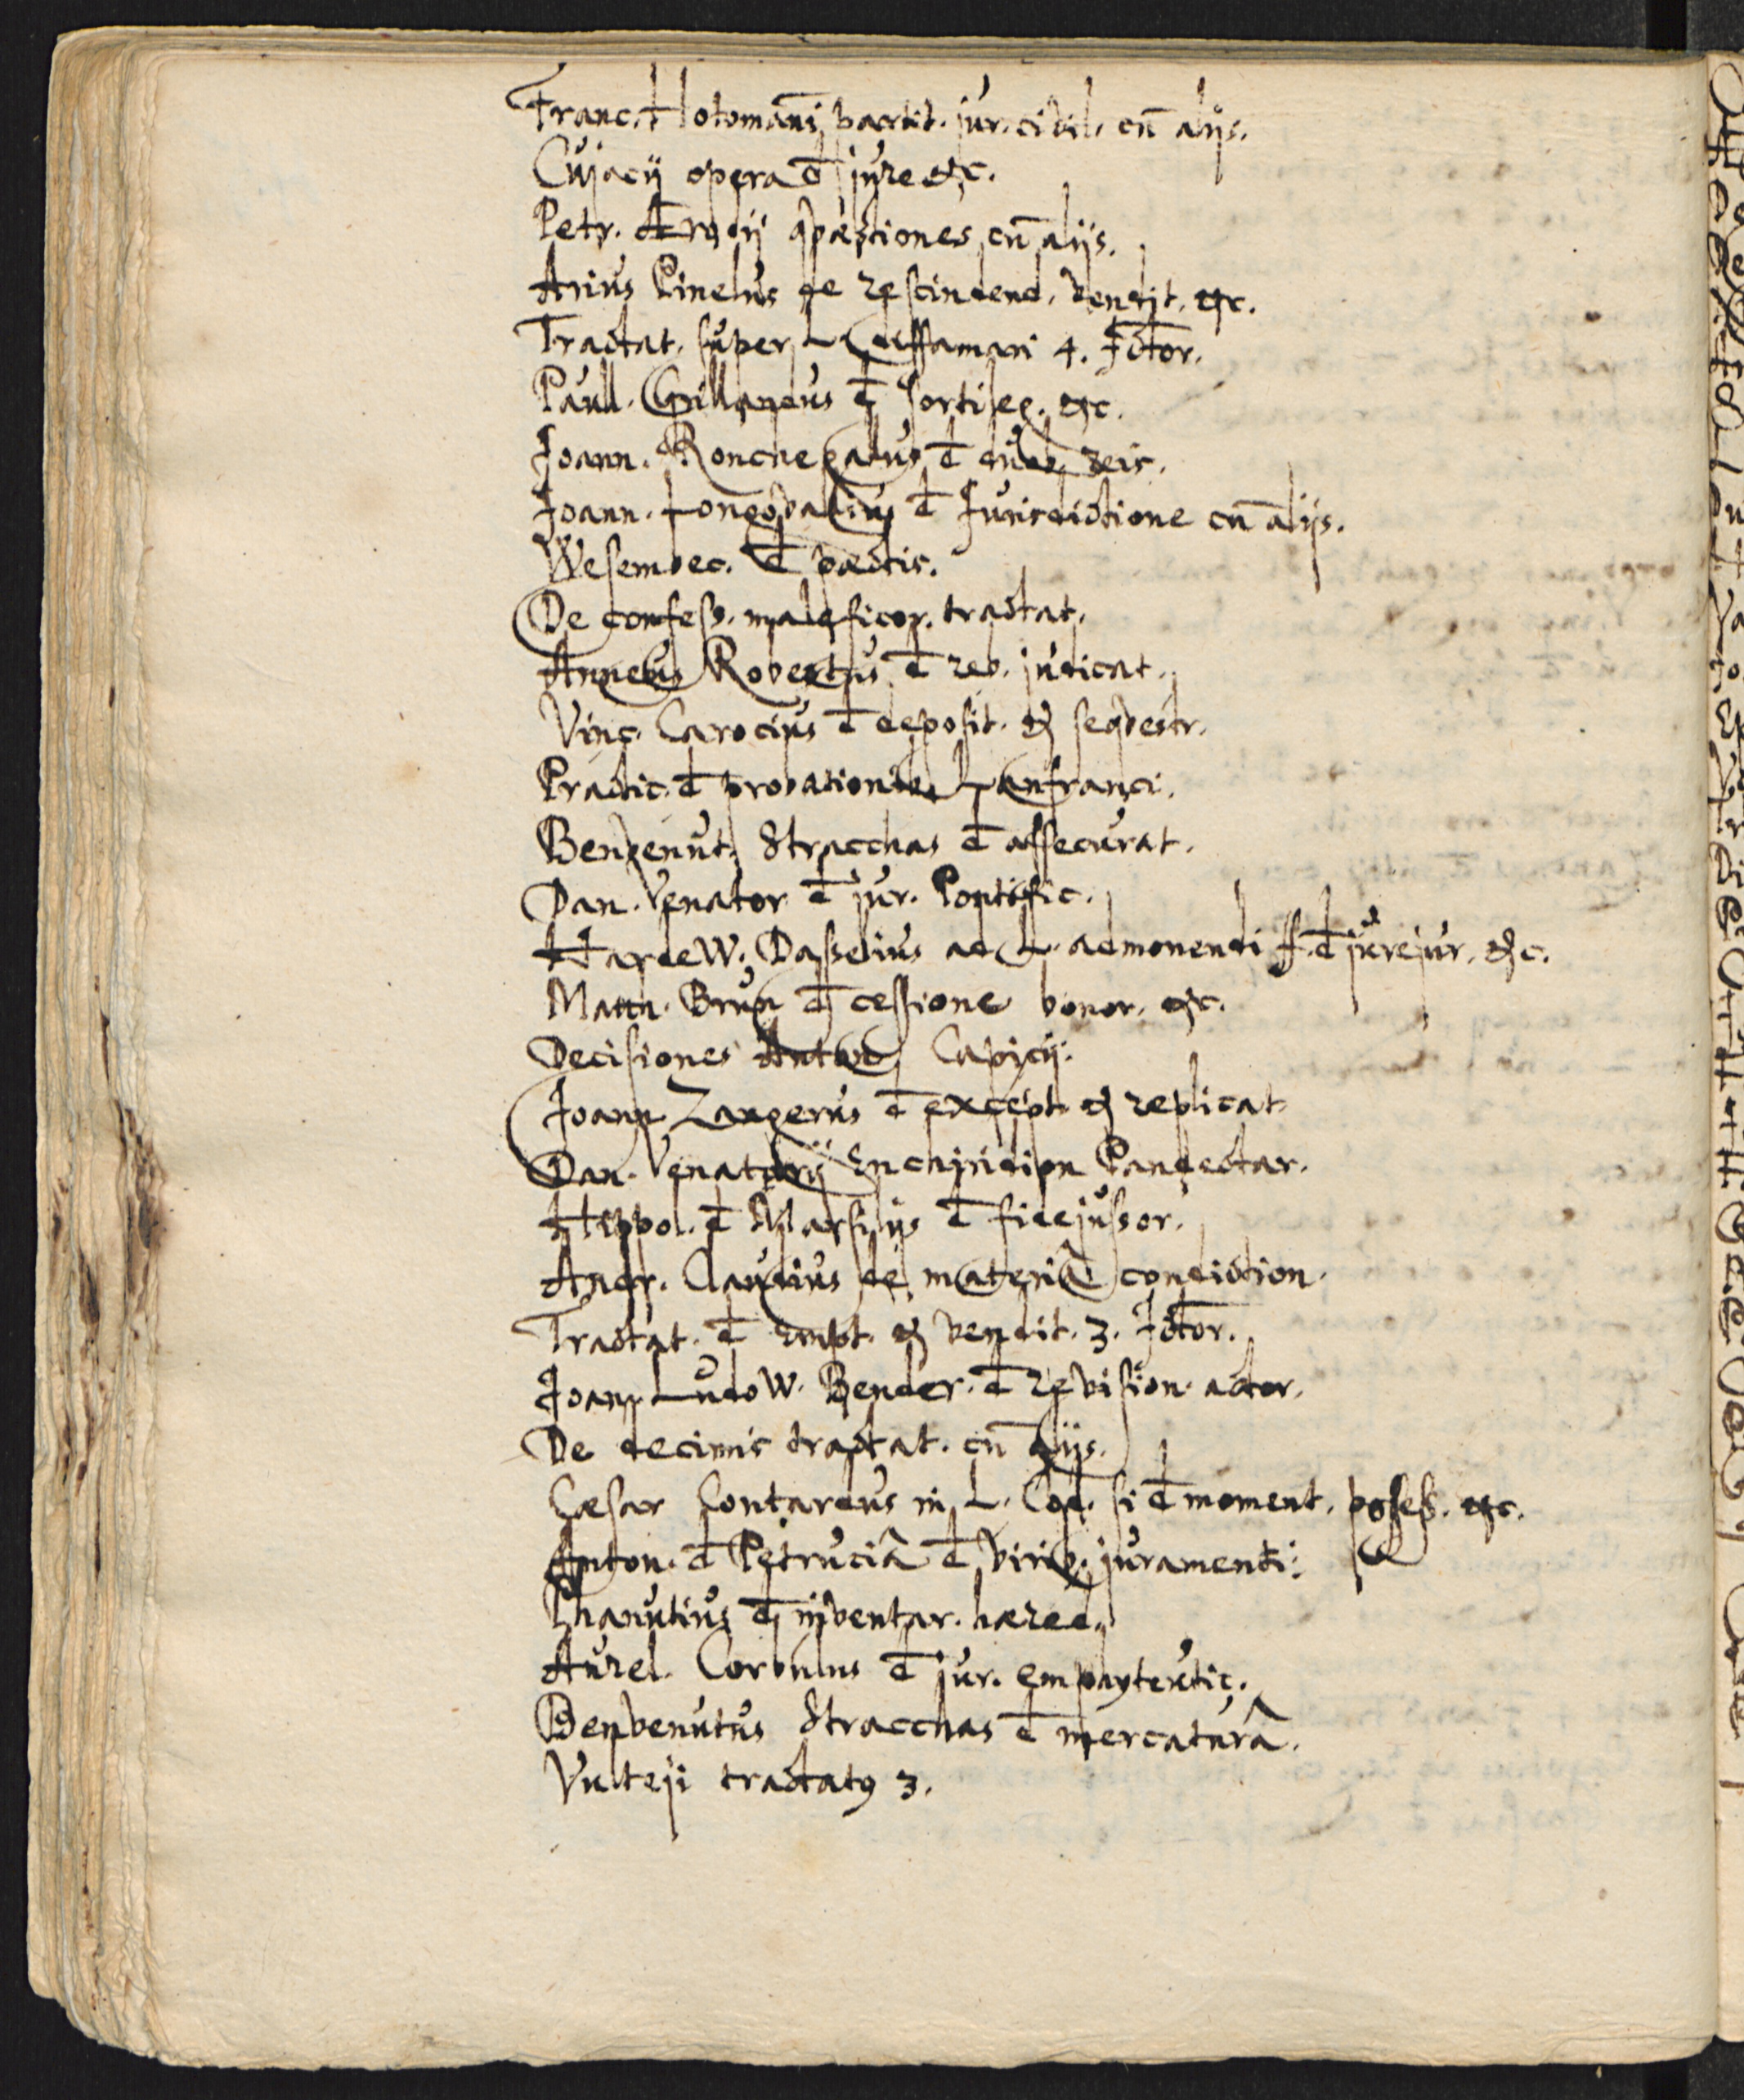 Franc. Hotomãni partit. jur. civil. cũ alijs.
Cujacij opera đ jure &c.
Petr. Ærodij qvæstiones cũ alijs.
Arius Pinelus de rescindend. vendit. &c.
Tractat. super L. diffamari 4. Jctor.
Paul. Grillandus đ sortileg. &c.
Joann. Ronchegalus đ duob. reis.
Joann. Longovallius đ Jurisdictione cũ alijs.
Wesembec. đ pactis.
De confess. maleficor. tractat.
Annæus Robertus đ reb. judicat.
Vinc. Carocius đ deposit. & seqvestr.
Practic. đ probationib. Lanfranci.
Benvenut. Stracchas đ assecurat.
Dan. Venator đ jur. Pontific.
Hardew. Dasselius ad L. admonendi ff. đ jurejur. &c.
Matth. Brun đ cessione bonor. &c.
Decisiones Anton. Capicij.
Joann. Zangerus đ except. & replicat.
Dan. Venatorij Enchiridion Pandectar.
Hippol. đ Marsilijs đ fidejussor.
Andr. Claudius de materiâ condiction.
Tractat. đ Empt. & vendit. 3. Jctor.
Joan. Ludow. Bender. đ revision. actor.
De decimis tractat. cũ alijs.
Cæsar Contardus in L. Cod. si đ moment. possess. &c.
Anton. đ Petruciâ đ virib. juramenti.
Phanutius đ inventar. hæred.
Aurel. Corbulus đ jur. emphyteutic.
Benvenutus Stracchas đ mercaturâ.
Vulteji tractatꝯ 3.